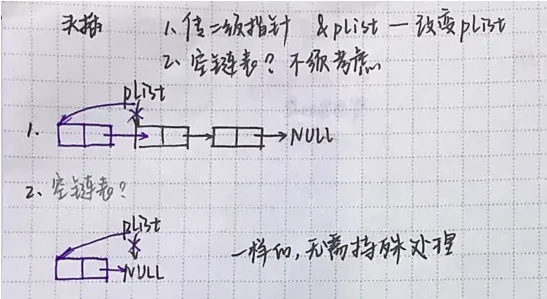 头插 1、传二级指针 &pList — 改变pList
2、空链表？不须考虑
pList
1.
NULL
2、空链表？
pList
NULL
一样的，无需特殊处理